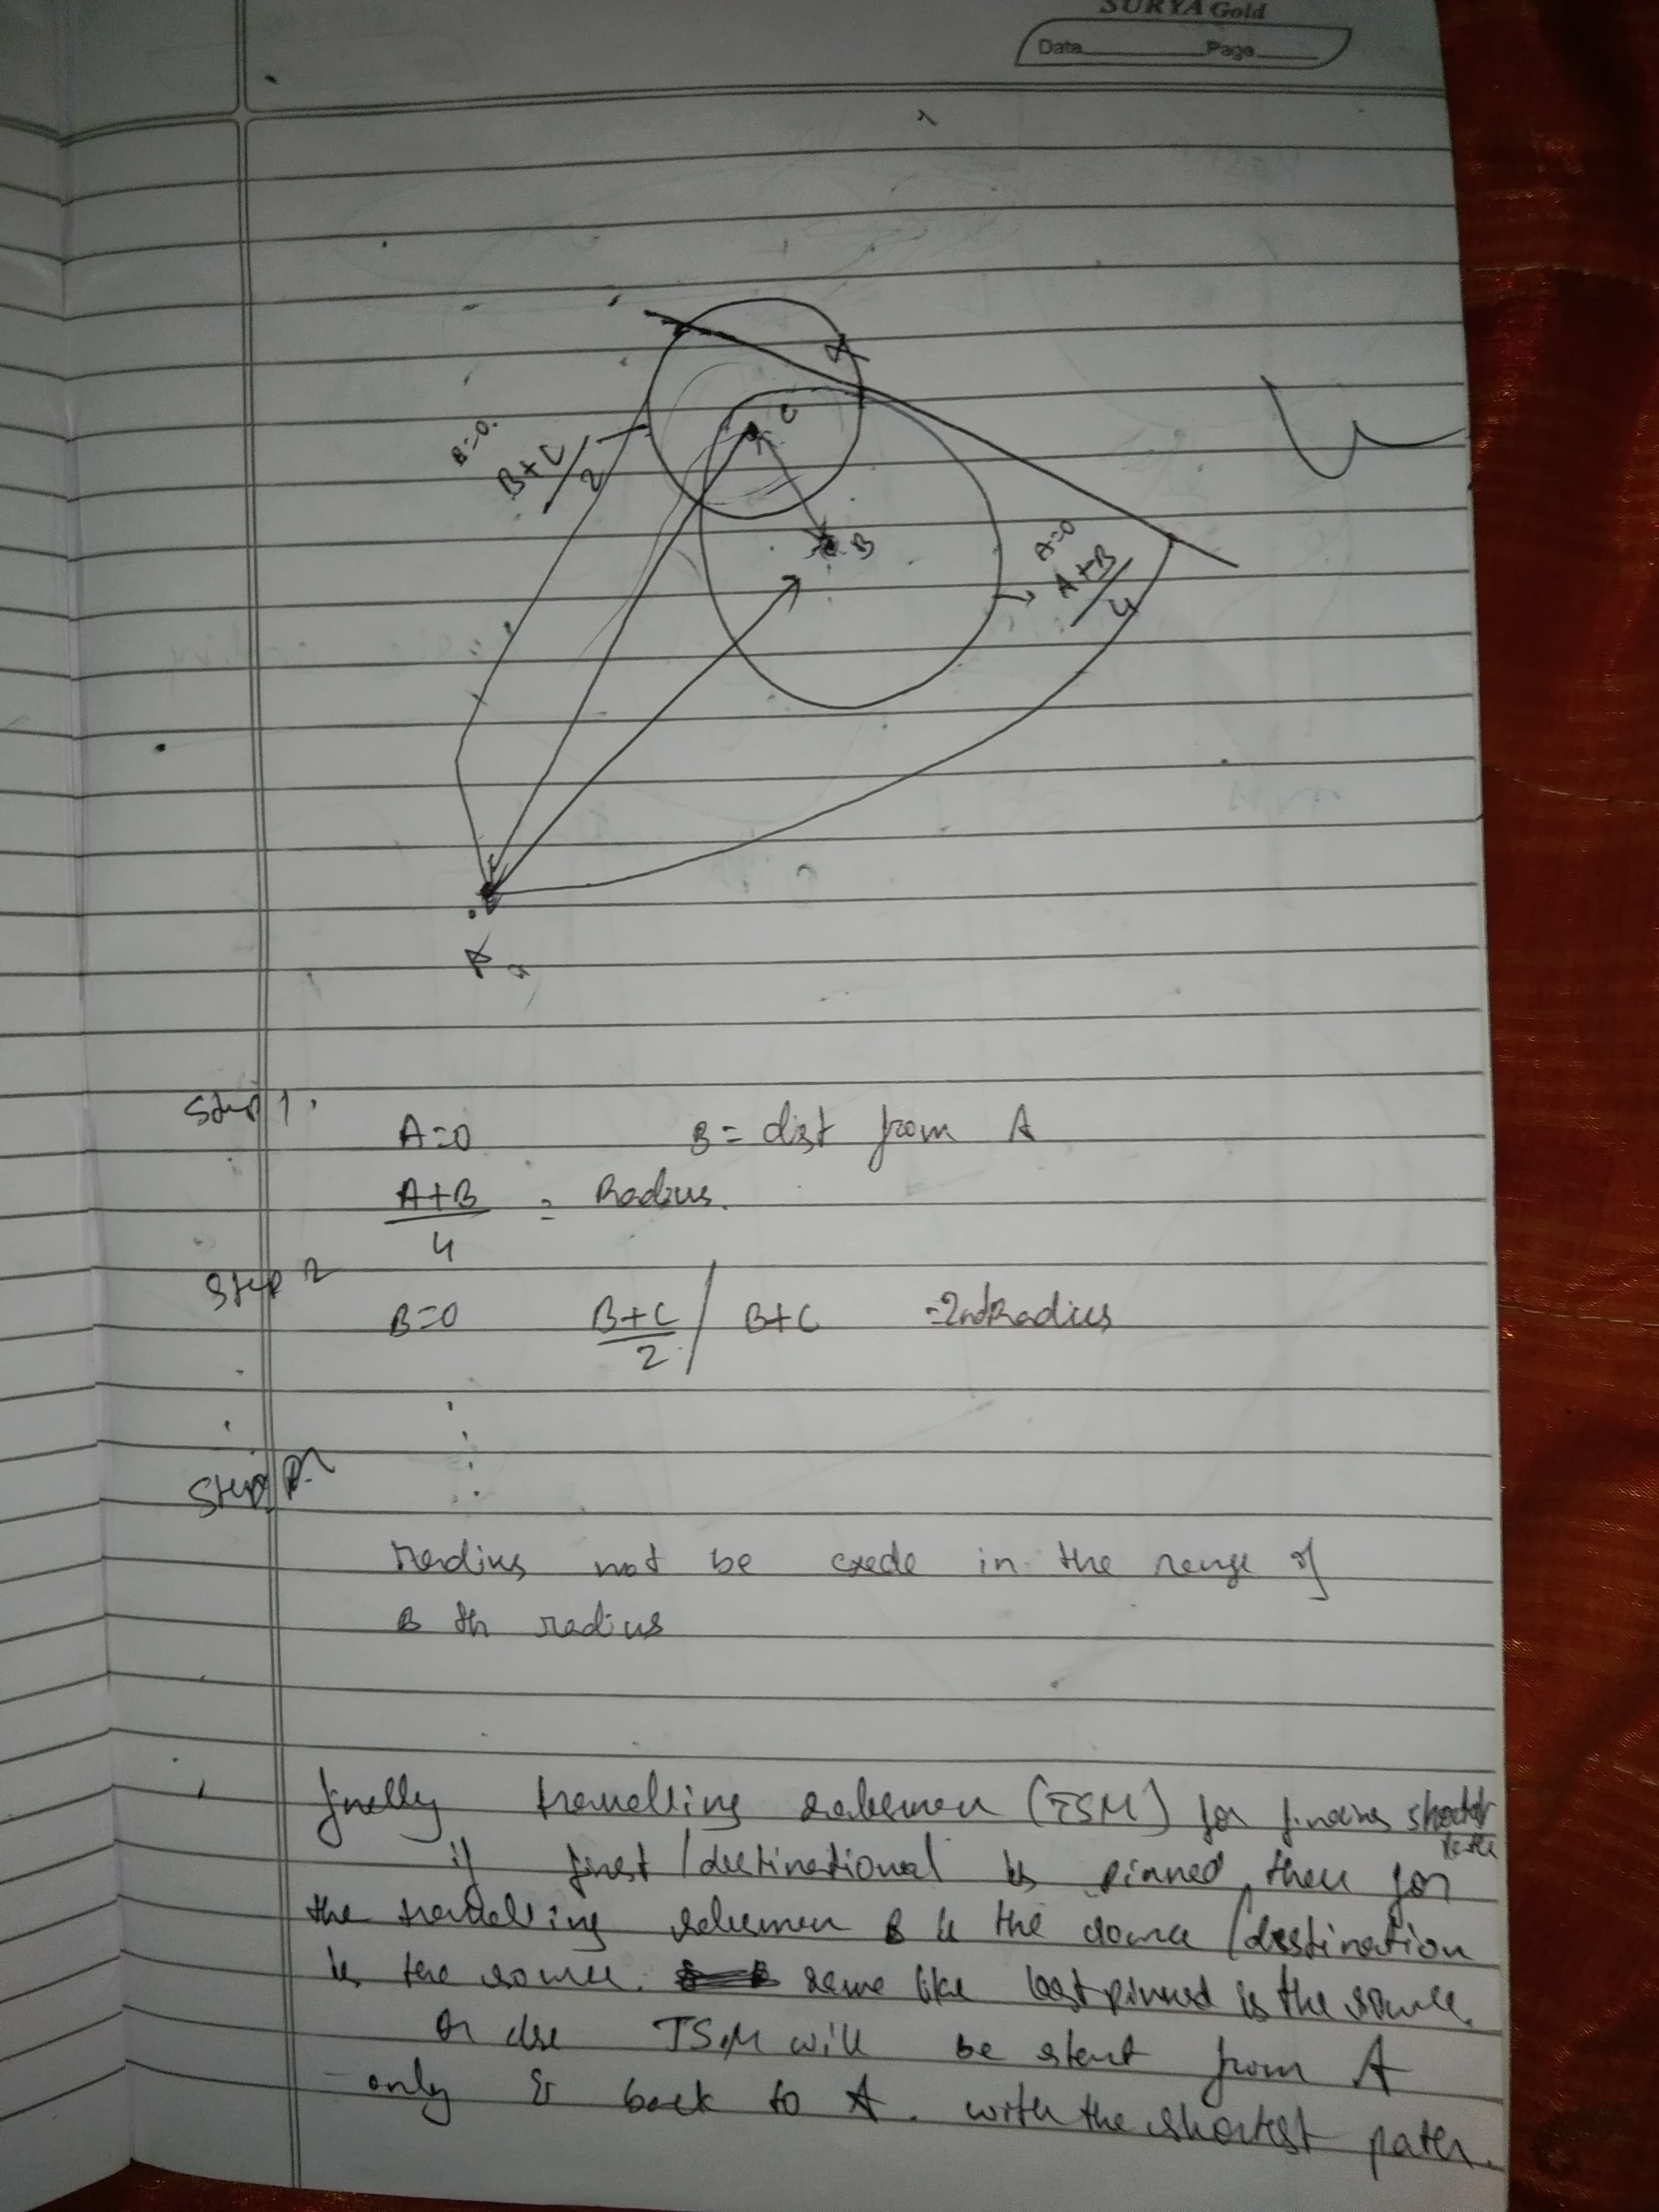 SURYA Gold
Date Page
A
C
B=0.
B+C/2
B
A=0
A+B/4
A
Step 1.
A=0 B= dist from A
A+B/4 = Radius.
Step 2
B=0 B+C/2 / B+C =2nd Radius
Step
Radius not be exede in the range of
B th radius
finelly travelling salesman (TSM) for finding shortest
if first/destinational is pinned, then for
the travelling salesman B is the source/destination
is the source. same like last pinned is the source.
or else TSM will be start from A
only & back to A. with the shortest path.